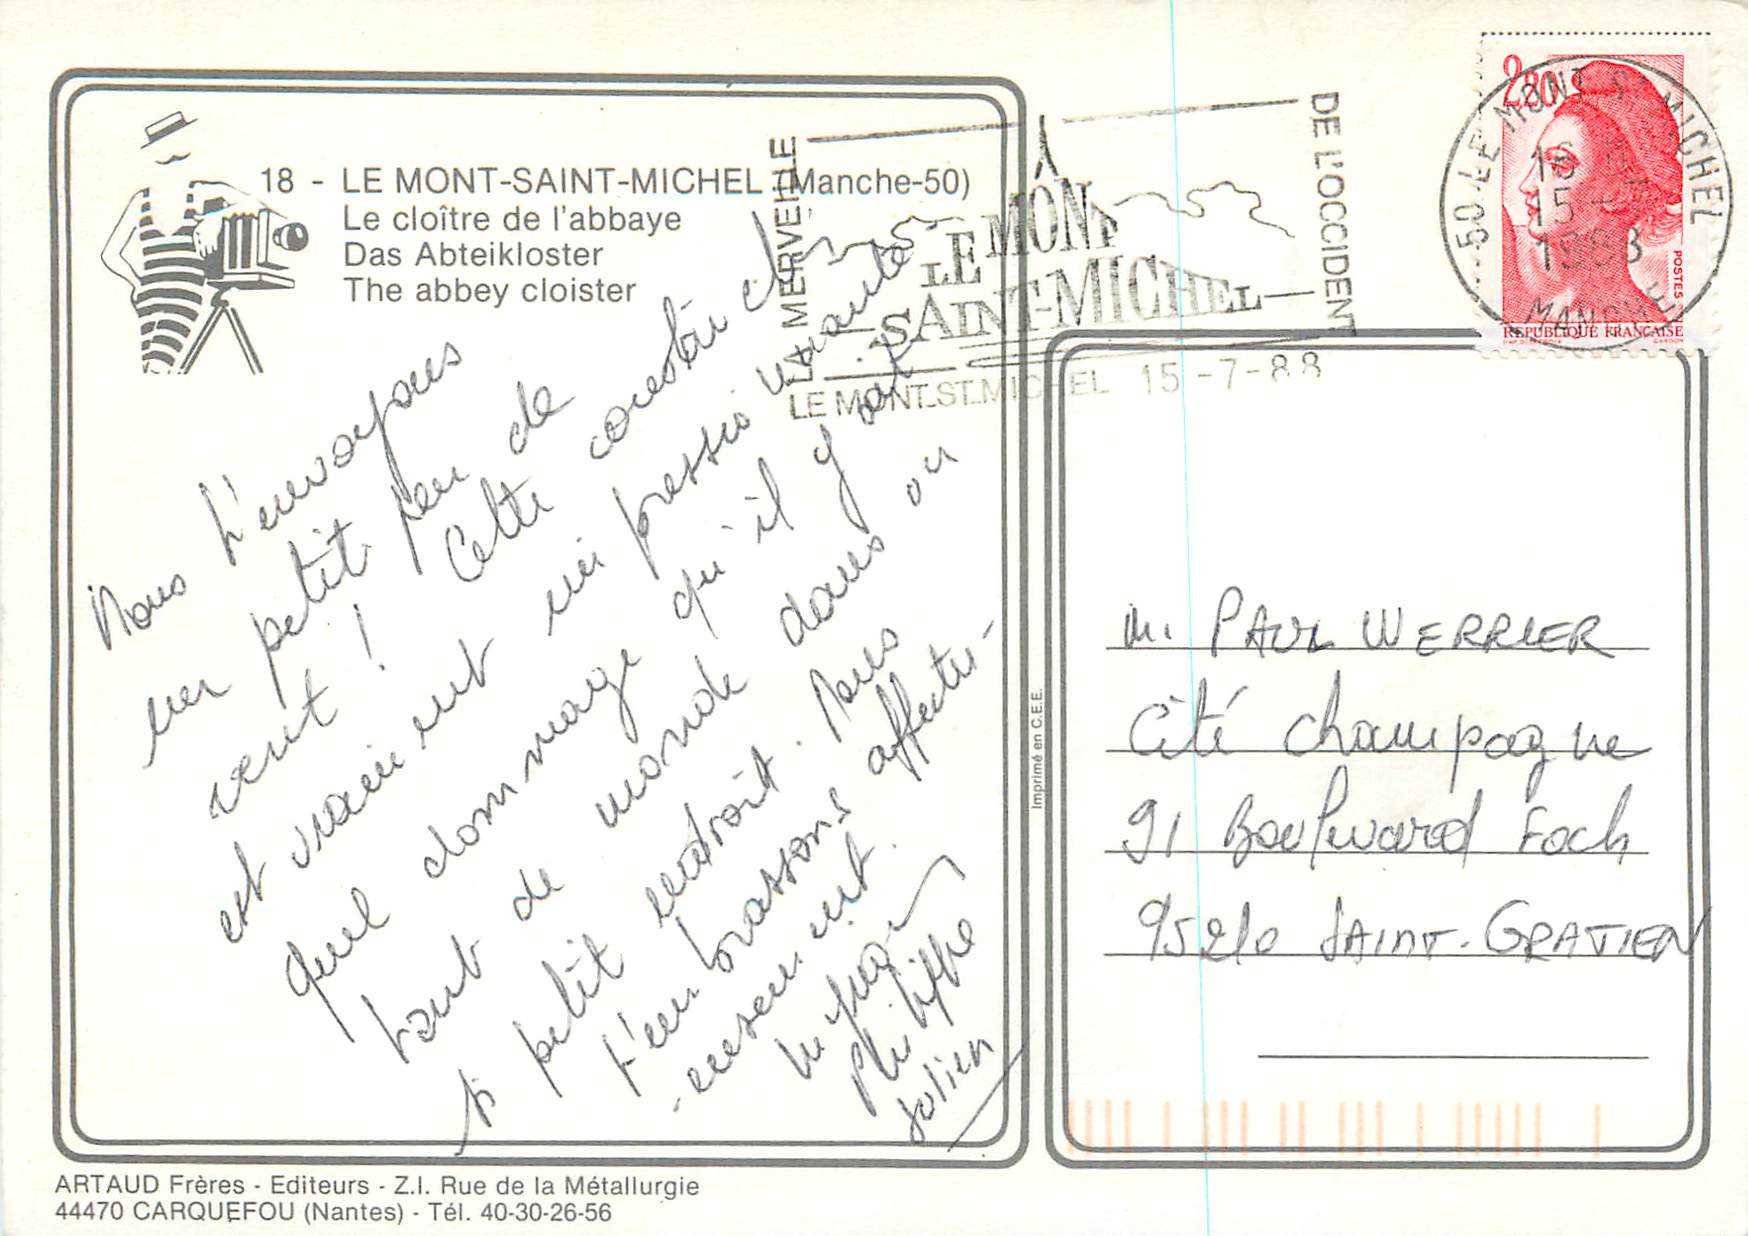 18 - LE MONT-SAINT-MICHEL (Manche-50)
Le cloître de l'abbaye
Das Abteikloster
The abbey cloister
Nous t'envoyons
un petit peu de
vent ! Cette construction
est vraiment impressionnante
quel dommage qu'il y ait
tant de monde dans un
si petit endroit. Nous
t'embrassons affectu-
-eusement.
Philippe
Julien
LA MERVEILLE
DE L'OCCIDENT
LE MONT
SAINT-MICHEL
LE MONT.ST.MICHEL 15 -7-88
2,80
50 LE MONT S MICHEL
16 H
15 -7
1988
MANCHE
POSTES
REPUBLIQUE FRANÇAISE
GANDON
Imprimé en C.E.E.
M. PAUL WERRIER
Cité Champagne
91 Boulevard Foch
95210 SAINT-GRATIEN
ARTAUD Frères - Editeurs - Z.I. Rue de la Métallurgie
44470 CARQUEFOU (Nantes) - Tél. 40-30-26-56